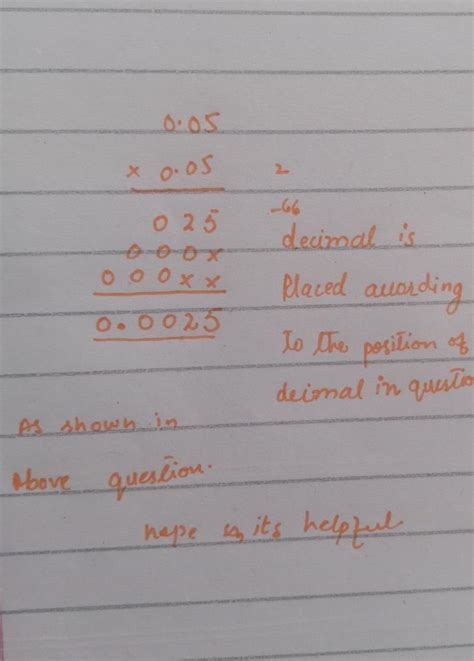 0.05
× 0.05 2
025 -66
000x decimal is
000xx Placed auording
0.0025 To the position of
deimal in questio
As shown in
Above question.
hope so its helpful